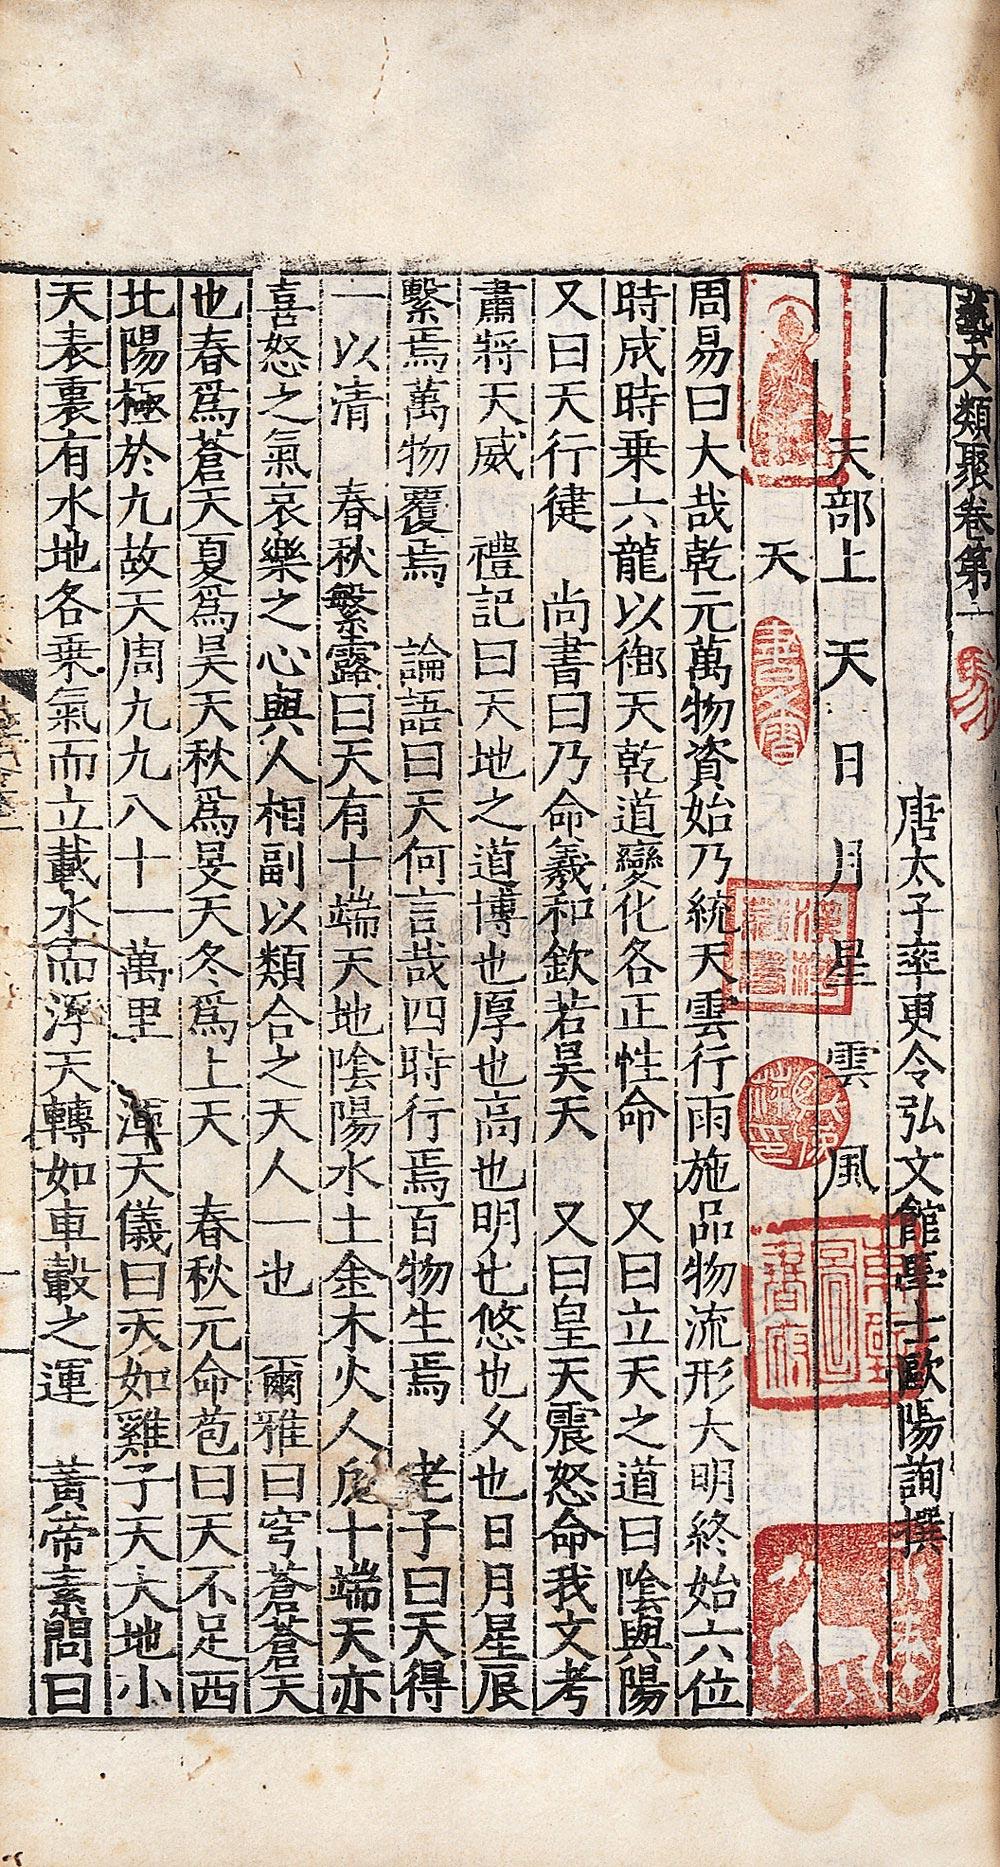 藝文類聚卷第一
唐太子率更令弘文館學士歐陽詢撰
天部上 天 日 月 星 雲 風
天
周易曰大哉乾元萬物資始乃統天雲行雨施品物流形大明終始六位
時成時乗六龍以御天乾道變化各正性命 又曰立天之道曰陰與陽
又曰天行徤 尚書曰乃命羲和欽若昊天 又曰皇天震怒命我文考
肅將天威 禮記曰天地之道博也厚也高也明也悠也久也日月星辰
繫焉萬物覆焉 論語曰天何言哉四時行焉百物生焉 老子曰天得
一以清 春秋繁露曰天有十端天地陰陽水土金木火人凡十端天亦
喜怒之氣哀樂之心與人相副以類合之天人一也 爾雅曰穹蒼蒼天
也春爲蒼天夏爲昊天秋爲旻天冬爲上天 春秋元命苞曰天不足西
北陽極於九故天周九九八十一萬里 渾天儀曰天如雞子天大地小
天表裏有水地各乗氣而立載水而浮天轉如車轂之運 黃帝素問曰